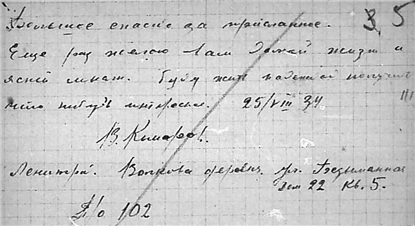 Большое спасибо за присланное. 3,5
Еще раз желаю Вам долгой жизни и
ясной мысли. Буду жить надеждой получить
что нибудь интересное. 25/VIII 34
В. Комаров.
Ленинград. Волкова деревня. пр.
дом 22 кв. 5.
102